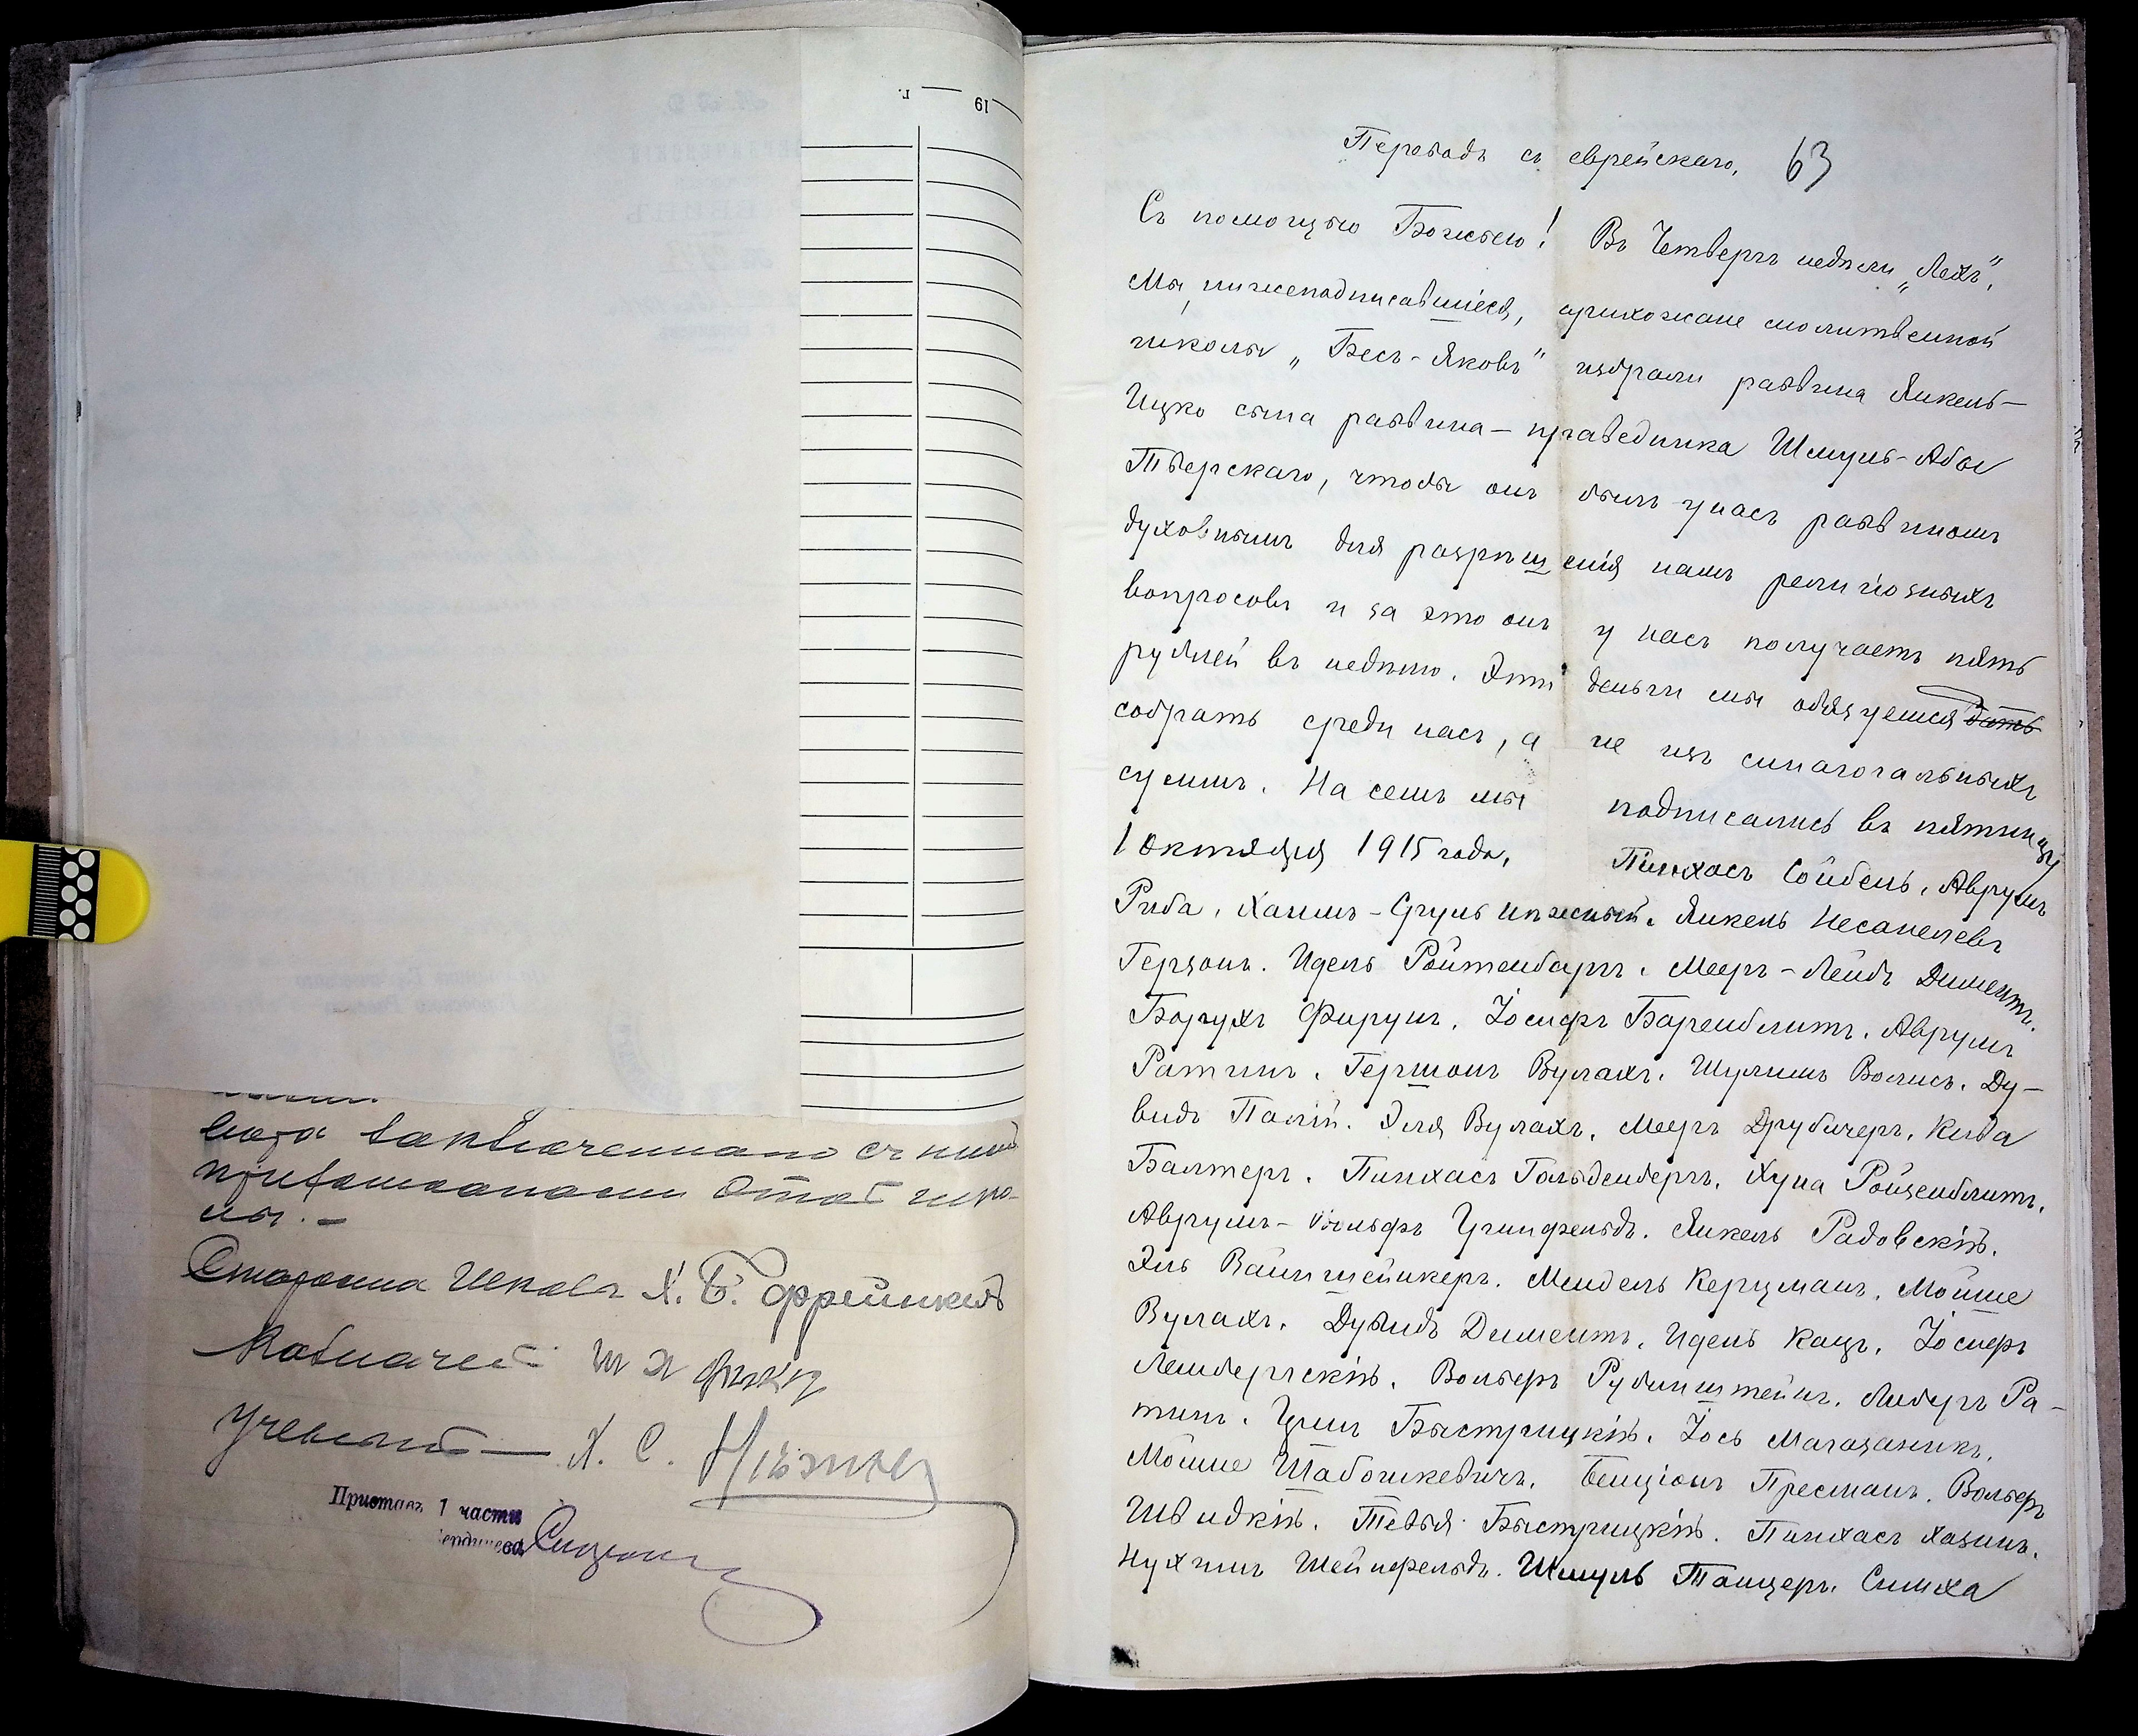 19 — г.
вора заключеннаго съ ними
прихожанами этой шко-
лы. –
Староста Школы Х. Б. Фрейлихъ
Казначей
Ученый — Х. С. Нѣжный
Приставъ 1 части
Бердичева
Переводъ съ еврейскаго. 63
Съ помощью Божьею! Въ Четвергъ недѣли „Лехъ",
Мы, нижеподписавшіеся, прихожане молитвенной
школы „Бесъ-Яковъ" избрали раввина Янкель-
Ицко сына раввина-праведника Шмуль-Абы
Тверскаго, чтобы онъ былъ у насъ раввиномъ
духовнымъ для разрѣшенія намъ религіозныхъ
вопросовъ и за это онъ у насъ получаетъ пять
рублей въ недѣлю. Эти деньги мы обязуемся дать
собрать среди насъ, а не изъ синагогальныхъ
суммъ. На семъ мы подписались въ пятницу
1 октября 1915 года. Пинхасъ Сойбель, Аврумъ
Риба, Хаимъ-Сруль Нѣжный. Янкель Несанелевъ
Герзонъ. Идель Ройтенбаргъ. Мееръ-Лейбъ Диментъ.
Борухъ Фирунъ. Іосифъ Баренблитъ. Аврумъ
Ратинъ. Гершонъ Вулахъ. Шулимъ Волисъ. Ду-
видъ Палій. Эля Вулахъ. Мееръ Друбичеръ. Кива
Балтеръ. Пинхасъ Гольденбергъ. Хуна Ройзенблитъ.
Аврумъ-Вольфъ Гринфельдъ. Янкель Радовскій.
Эль Вайншейнкеръ. Мендель Керцманъ. Мойше
Вулахъ. Дувидъ Диментъ. Идель Кацъ. Іосифъ
Лембергскій. Вольфъ Рубинштейнъ. Либеръ Ра-
тинъ. Гришъ Быстрицкій. Іось Магазаникъ.
Мойше Шабошкевичъ. Бенціонъ Пресманъ. Вольфъ
Швидкій. Тевья Быстрицкій. Пинхасъ Хазинъ.
Нухимъ Шейнфельдъ. Шмуль Танцеръ. Симха